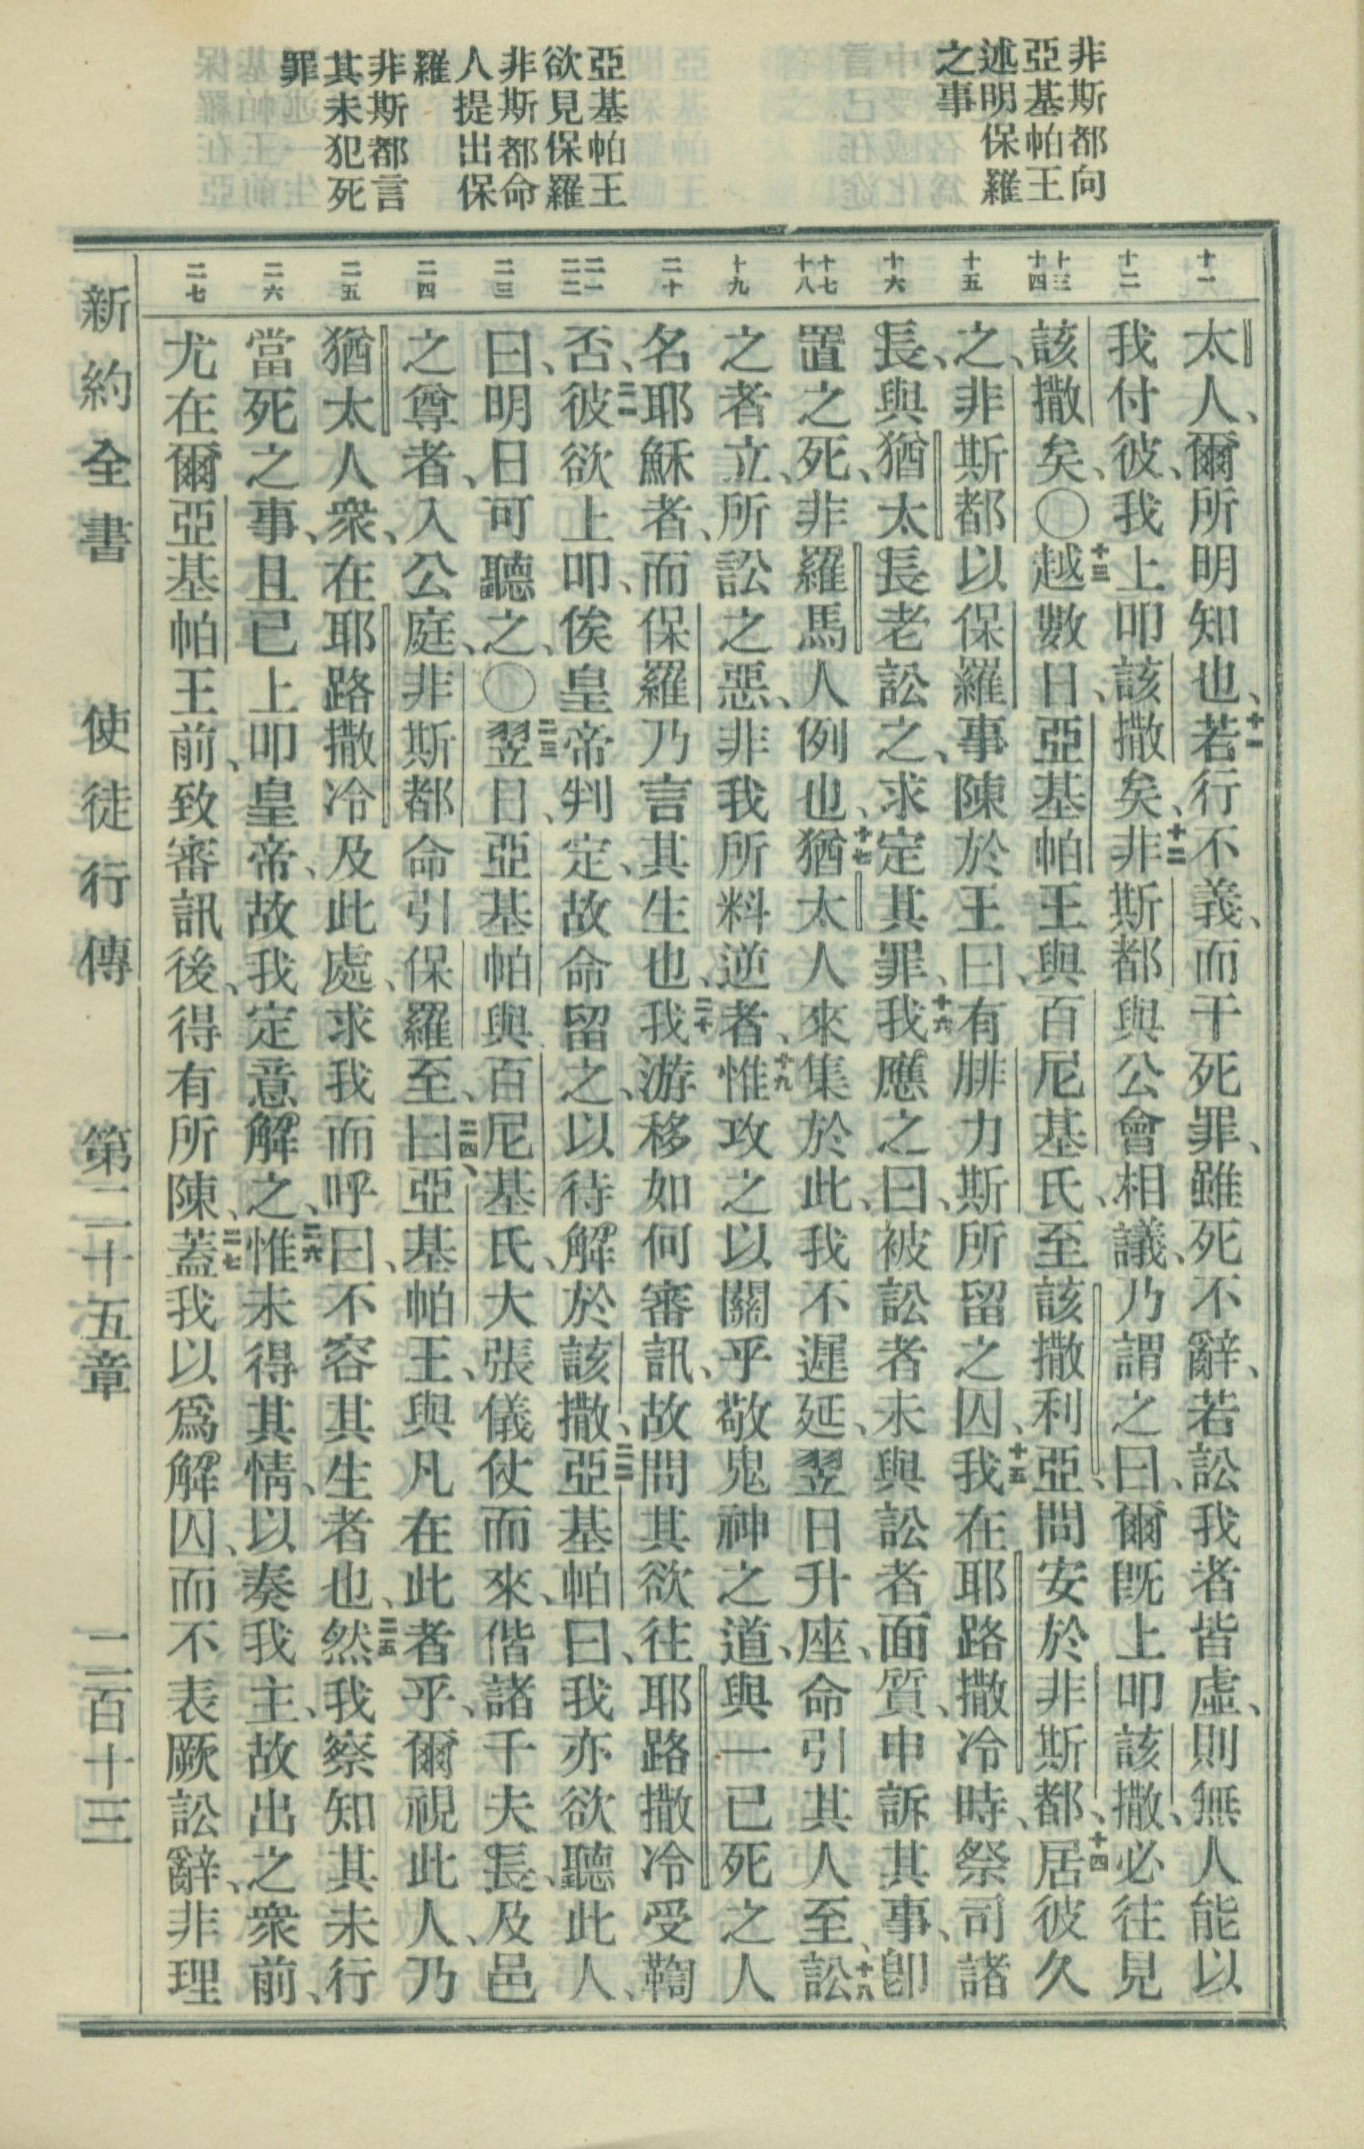 非斯都向
亞基帕王
述明保羅
之事
亞基帕王
欲見保羅
非斯都命
人提出保
羅
非斯都言
其未犯死
罪
十一
十二
十三
十四
十五
十六
十七
十八
十九
二十
二一
二二
二三
二四
二五
二六
二七
太人、爾所明知也、十一若行不義、而干死罪、雖死不辭、若訟我者皆虛、則無人能以
我付彼、我上叩該撒矣、十二非斯都與公會相議、乃謂之曰、爾既上叩該撒、必往見
該撒矣、〇十三越數日、亞基帕王與百尼基氏、至該撒利亞、問安於非斯都、十四居彼久
之、非斯都以保羅事陳於王曰、有腓力斯所留之囚、十五我在耶路撒冷時、祭司諸
長、與猶太長老訟之、求定其罪、十六我應之曰、被訟者未與訟者面質、申訴其事、卽
置之死、非羅馬人例也、十七猶太人來集於此、我不遲延、翌日升座、命引其人至、十八訟
之者立、所訟之惡、非我所料逆者、十九惟攻之以關乎敬鬼神之道、與一已死之人
名耶穌者、而保羅乃言其生也、二十我游移如何審訊、故問其欲往耶路撒冷受鞫
否、二一彼欲上叩、俟皇帝判定、故命留之、以待解於該撒、二二亞基帕曰、我亦欲聽此人、
曰、明日可聽之、〇二三翌日、亞基帕與百尼基氏、大張儀仗而來、偕諸千夫長、及邑
之尊者、入公庭、非斯都命引保羅至、二四曰、亞基帕王、與凡在此者乎、爾視此人、乃
猶太人衆、在耶路撒冷及此處、求我而呼曰、不容其生者也、二五然我察知其未行
當死之事、且已上叩皇帝、故我定意解之、二六惟未得其情、以奏我主、故出之衆前、
尤在爾亞基帕王前、致審訊後、得有所陳、二七蓋我以爲解囚、而不表厥訟辭、非理
新約全書　使徒行傳　第二十五章　二百十三